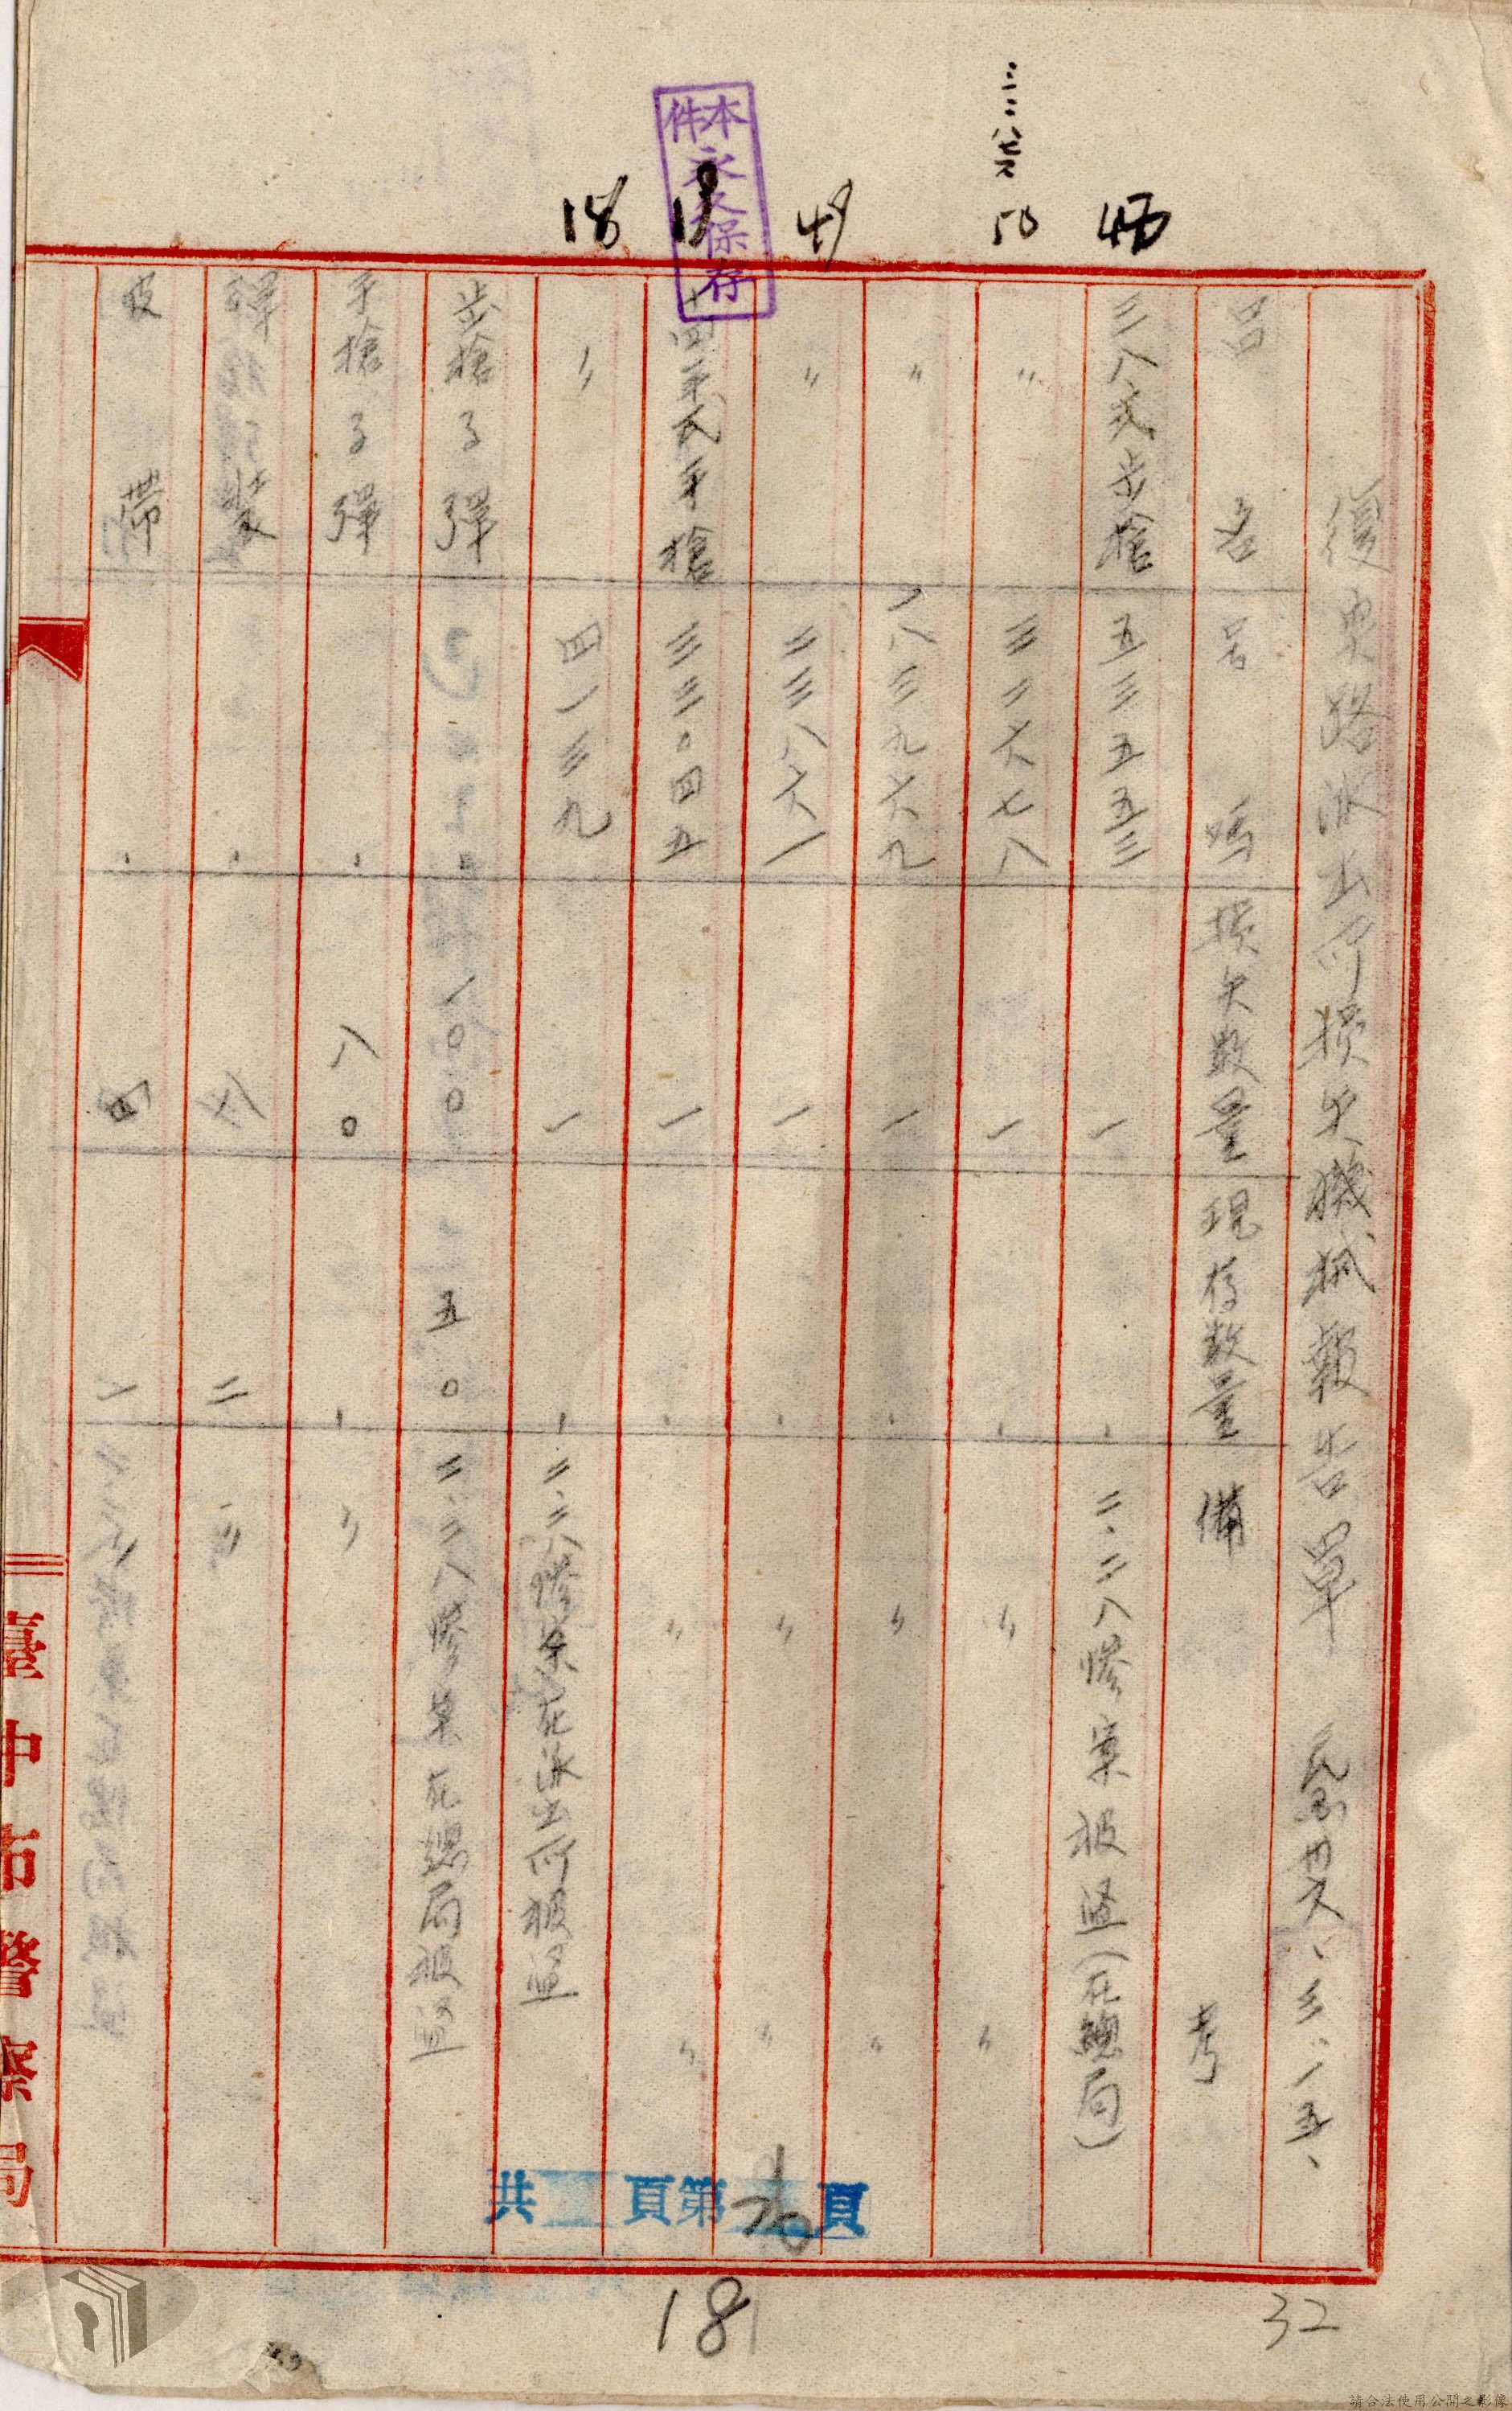 本件永久保存
47
50
49
19
18
復興路派出所損失機械報告單　民國卅六、三、一五、
品名　号碼　損失數量　現存數量　備考
三八式步槍　五三五五三　一　、　二.二八慘案被盜(在總局)
〃　三二六七八　一　、　〃　〃
〃　一八三九六九　一　、　〃　〃
〃　二三八六一　一　、　〃　〃
十四年式手槍　三二〇四五　一　、　〃　〃
〃　四一三九　一　、　二.二八慘案在派出所被盜
步槍子彈　、　一〇〇　五〇　二.二八慘案在總局被盜
手槍子彈　、　八〇　、　〃
彈藥　、　六　二　〃
皮帶　、　四　一　〃
臺中市警察局
共　頁第　頁
18
32
請合法使用公開之影像